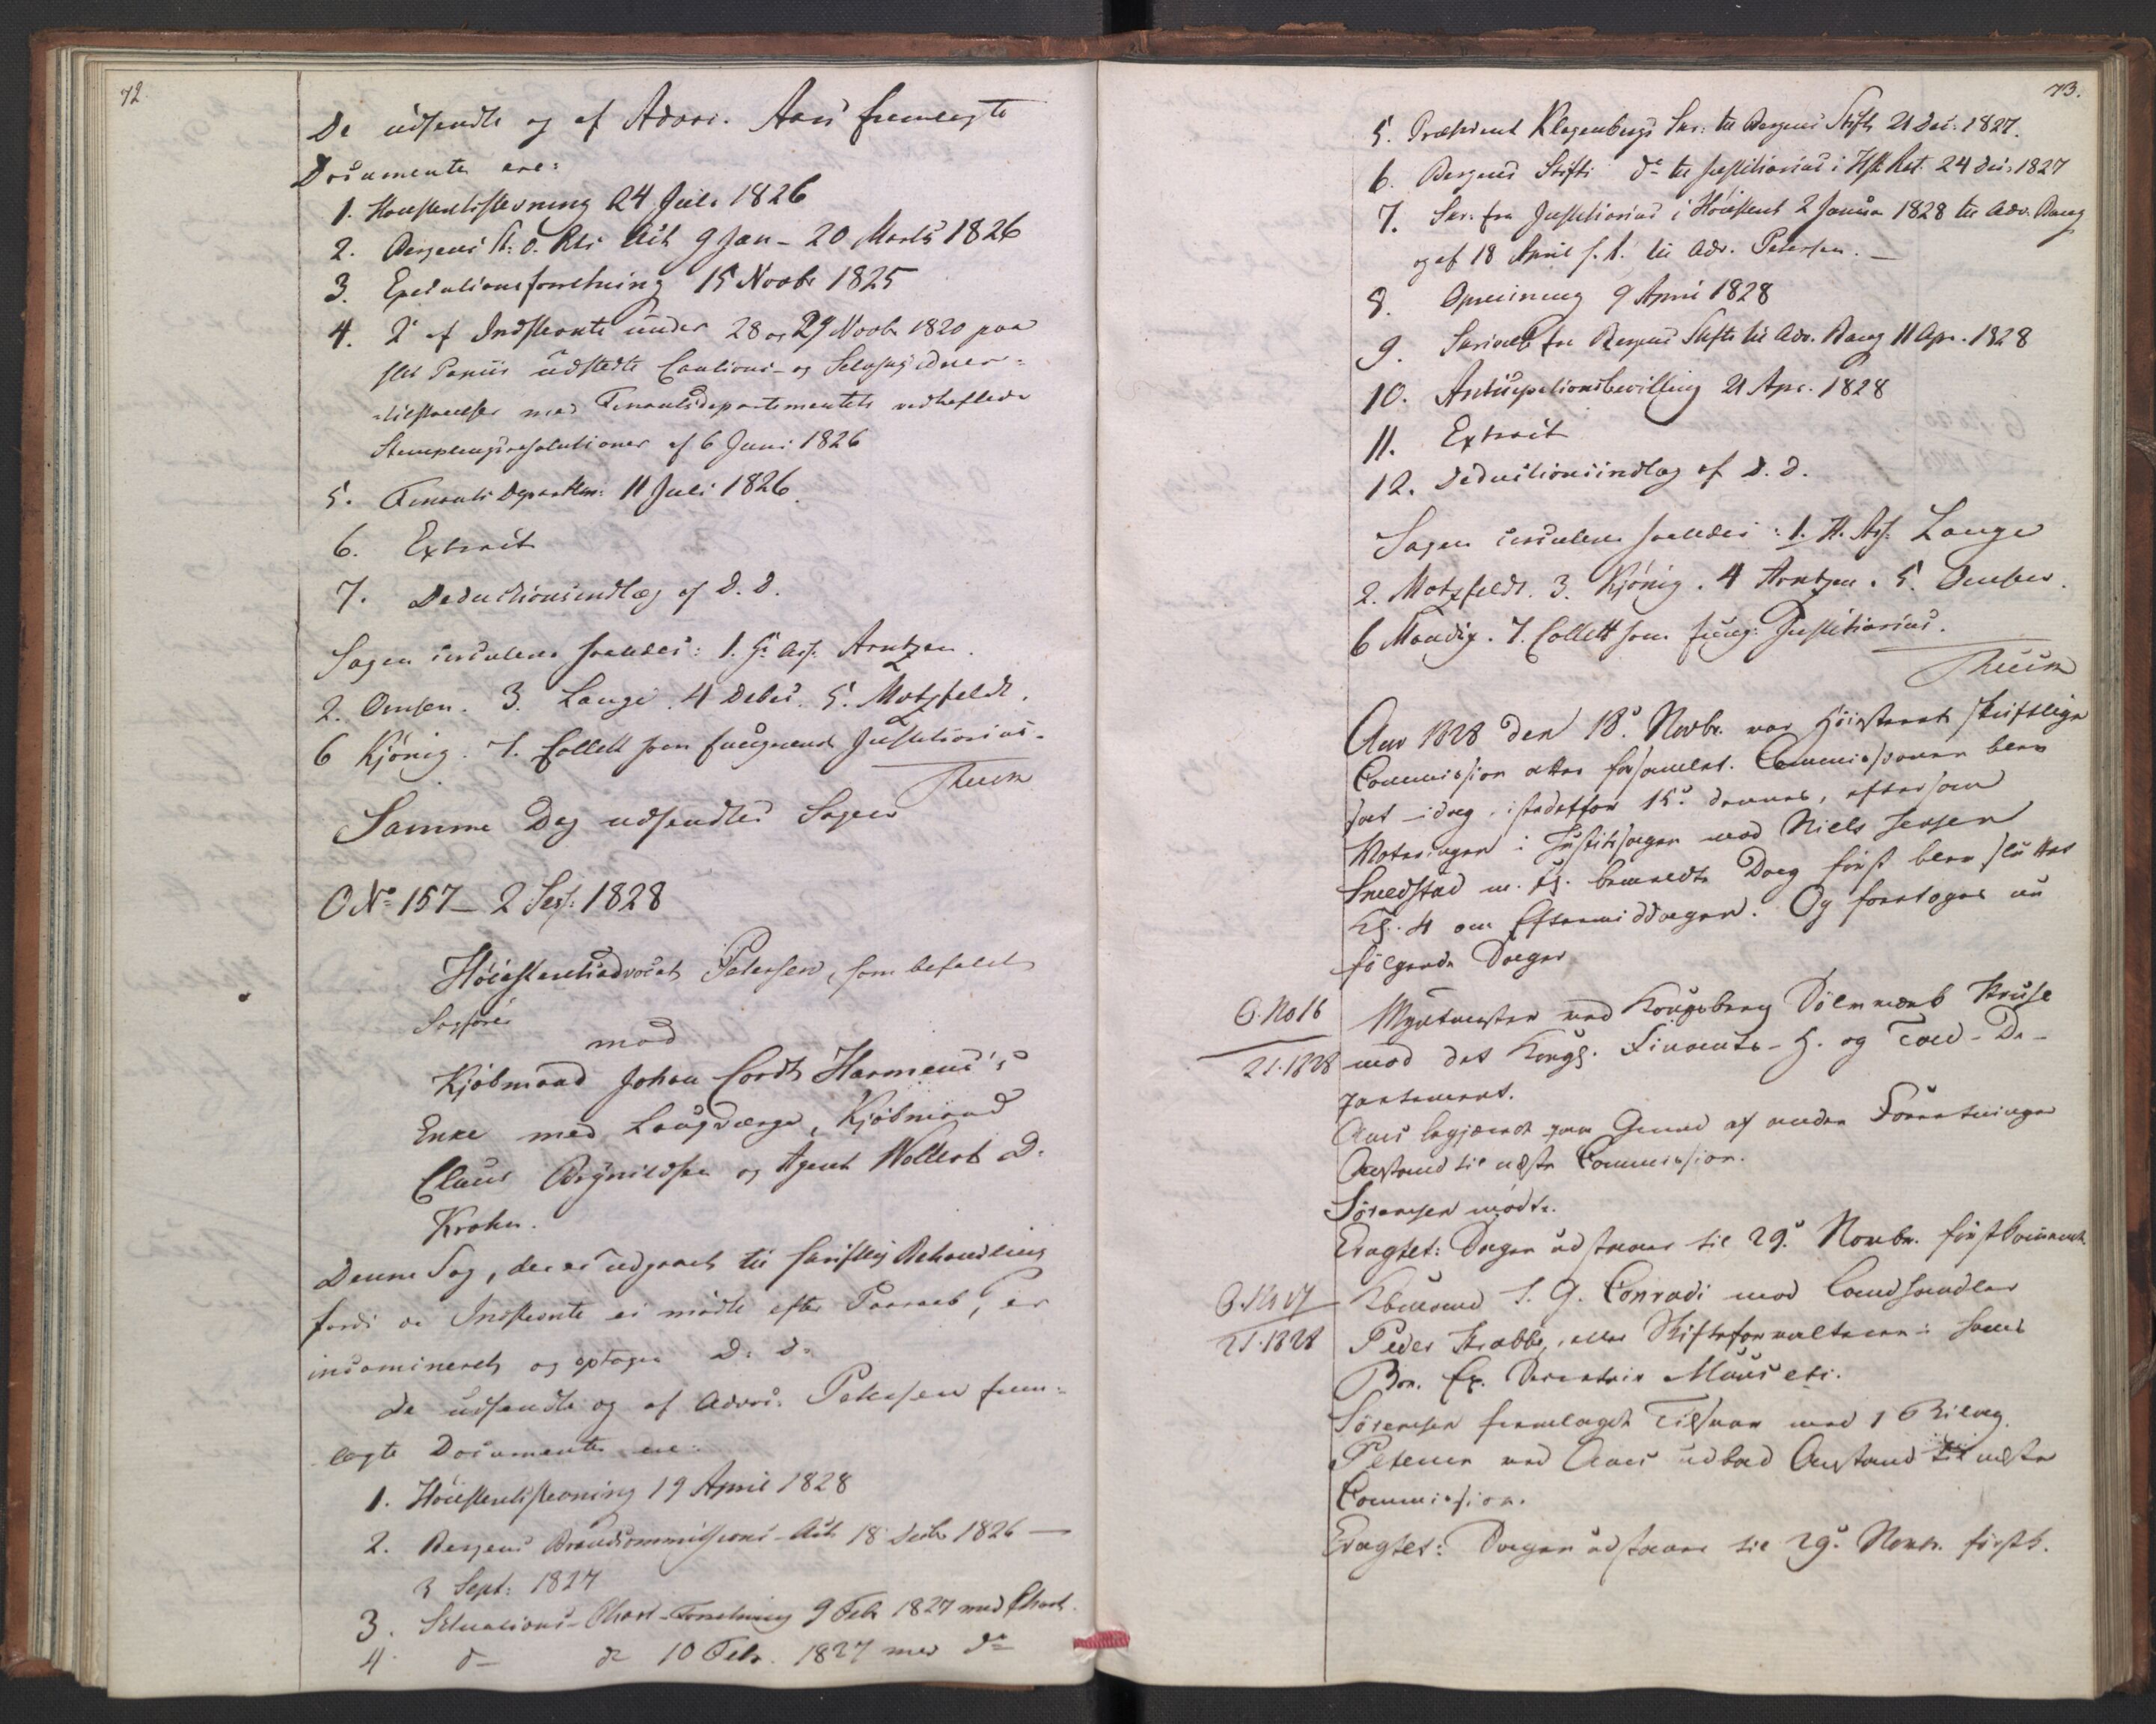 72.
De udsendte og af Advoc. Aars fremlagte
Documenter ere:
1. Høiesteretsstevning 24 Juli 1826
2. Bergens St: O: Rets Act 9 Jan - 20 Marts 1826
3. Executionsforretning 15 Novbr 1825
4. 2 af Indstevnte under 28 og 29 Novbr 1820 paa
slet Papiir udstedte Cautions- og Selvskyldner-
tilstaaelser med Finantsdepartementets vedheftede
Stemplingsresolutioner af 6 Juni 1826
5. Finants Departem: 11 Juli 1826
6. Extract
7. Deductionsindlæg af D. D.
Sagen circulerer saaledes: 1. Hr Ass. Arntzen.
2. Omsen. 3. Lange. 4 Debes. 5. Motzfeldt.
6 Kjønig. 7. Collett som fungerende Justitiarius.
Samme Dag udsendtes Sagen
O No 157 - 2 Sess: 1828
Høiesteretsadvocat Petersen, som befalet
Sagfører
mod
Kjøbmand Johan Cordt Harmens's
Enke med Laugværge, Kjøbmand
Claus Brynildsen og Agent Wollert D.
Krohn.
Denne Sag, der er udgaaet til skriftlig Behandling
fordi de Indstevnte ei mødte efter Paaraab, er
incamineret og optagen D. D.
De udsendte og af Advoc. Petersen frem-
lagte Documenter ere:
1. Høiesteretsstevning 19 April 1828
2. Bergens Brandcommissions-Act 18 Decbr 1826 -
3 Sept: 1827
3. Situations-Chart-Forretning 9 Febr 1827 med Chart.
4. do do 10 Febr. 1827 med do
73.
5. Præsident Klagenbergs Skr. til Bergens Stift 21 Dec: 1827.
6. Bergens Stifts do til Justitiarius i HstRet 24 Dec: 1827
7. Skr. fra Justitiarius i Høiesteret 2 Januar 1828 til Adv. Bang
og af 18 April s. A. til Adv. Petersen. -
8. Opreisning 9 April 1828
9. Skrivelse fra Bergens Stift til Adv. Bang 11 Apr. 1828
10. Anticipationsbevilling 21 Apr. 1828
11. Extract
12. Deductionsindlæg af D. D.
Sagen circulerer saaledes: 1. H. Ass. Lange
2. Motzfeldt. 3. Kjønig. 4 Arntzen. 5. Omsen.
6 Mandix. 7. Collett som fung: Justitiarius.
Aar 1828 den 18de Novbr. var Høiesterets skriftlige
Commission atter forsamlet. Commissionen blev
sat idag istedetfor 15de dennes, eftersom
Voteringen i Justitssagen mod Niels Jensen
Smedstad m. fl. bemeldte Dag først blev sluttet
Kl. 4 om Eftermiddagen. Og foretoges nu
følgende Sager
O. No 16
21.1828
Myntmester ved Kongsberg Sølvværk Kruse
mod det Kongl. Finants- H. og Told-De-
partement.
Aars begjærede paa Grund af andre Forretninger
Anstand til næste Commission.
Sørensen mødte.
Eragtet: Sagen udstaaer til 29de Novbr. førstkommende
O. No 17
21.1828
Kbmand S. G. Conradi mod Landhandler
Peder Krabbe, eller Skifteforvalteren i hans
Boe. Ex. Secretair Maurseth.
Sørensen fremlagde Tilsvar med 1 Bilag.
Petersen ved Aars udbad Anstand til næste
Commission.
Eragtet: Sagen udstaaer til 29de Novbr. førstk.